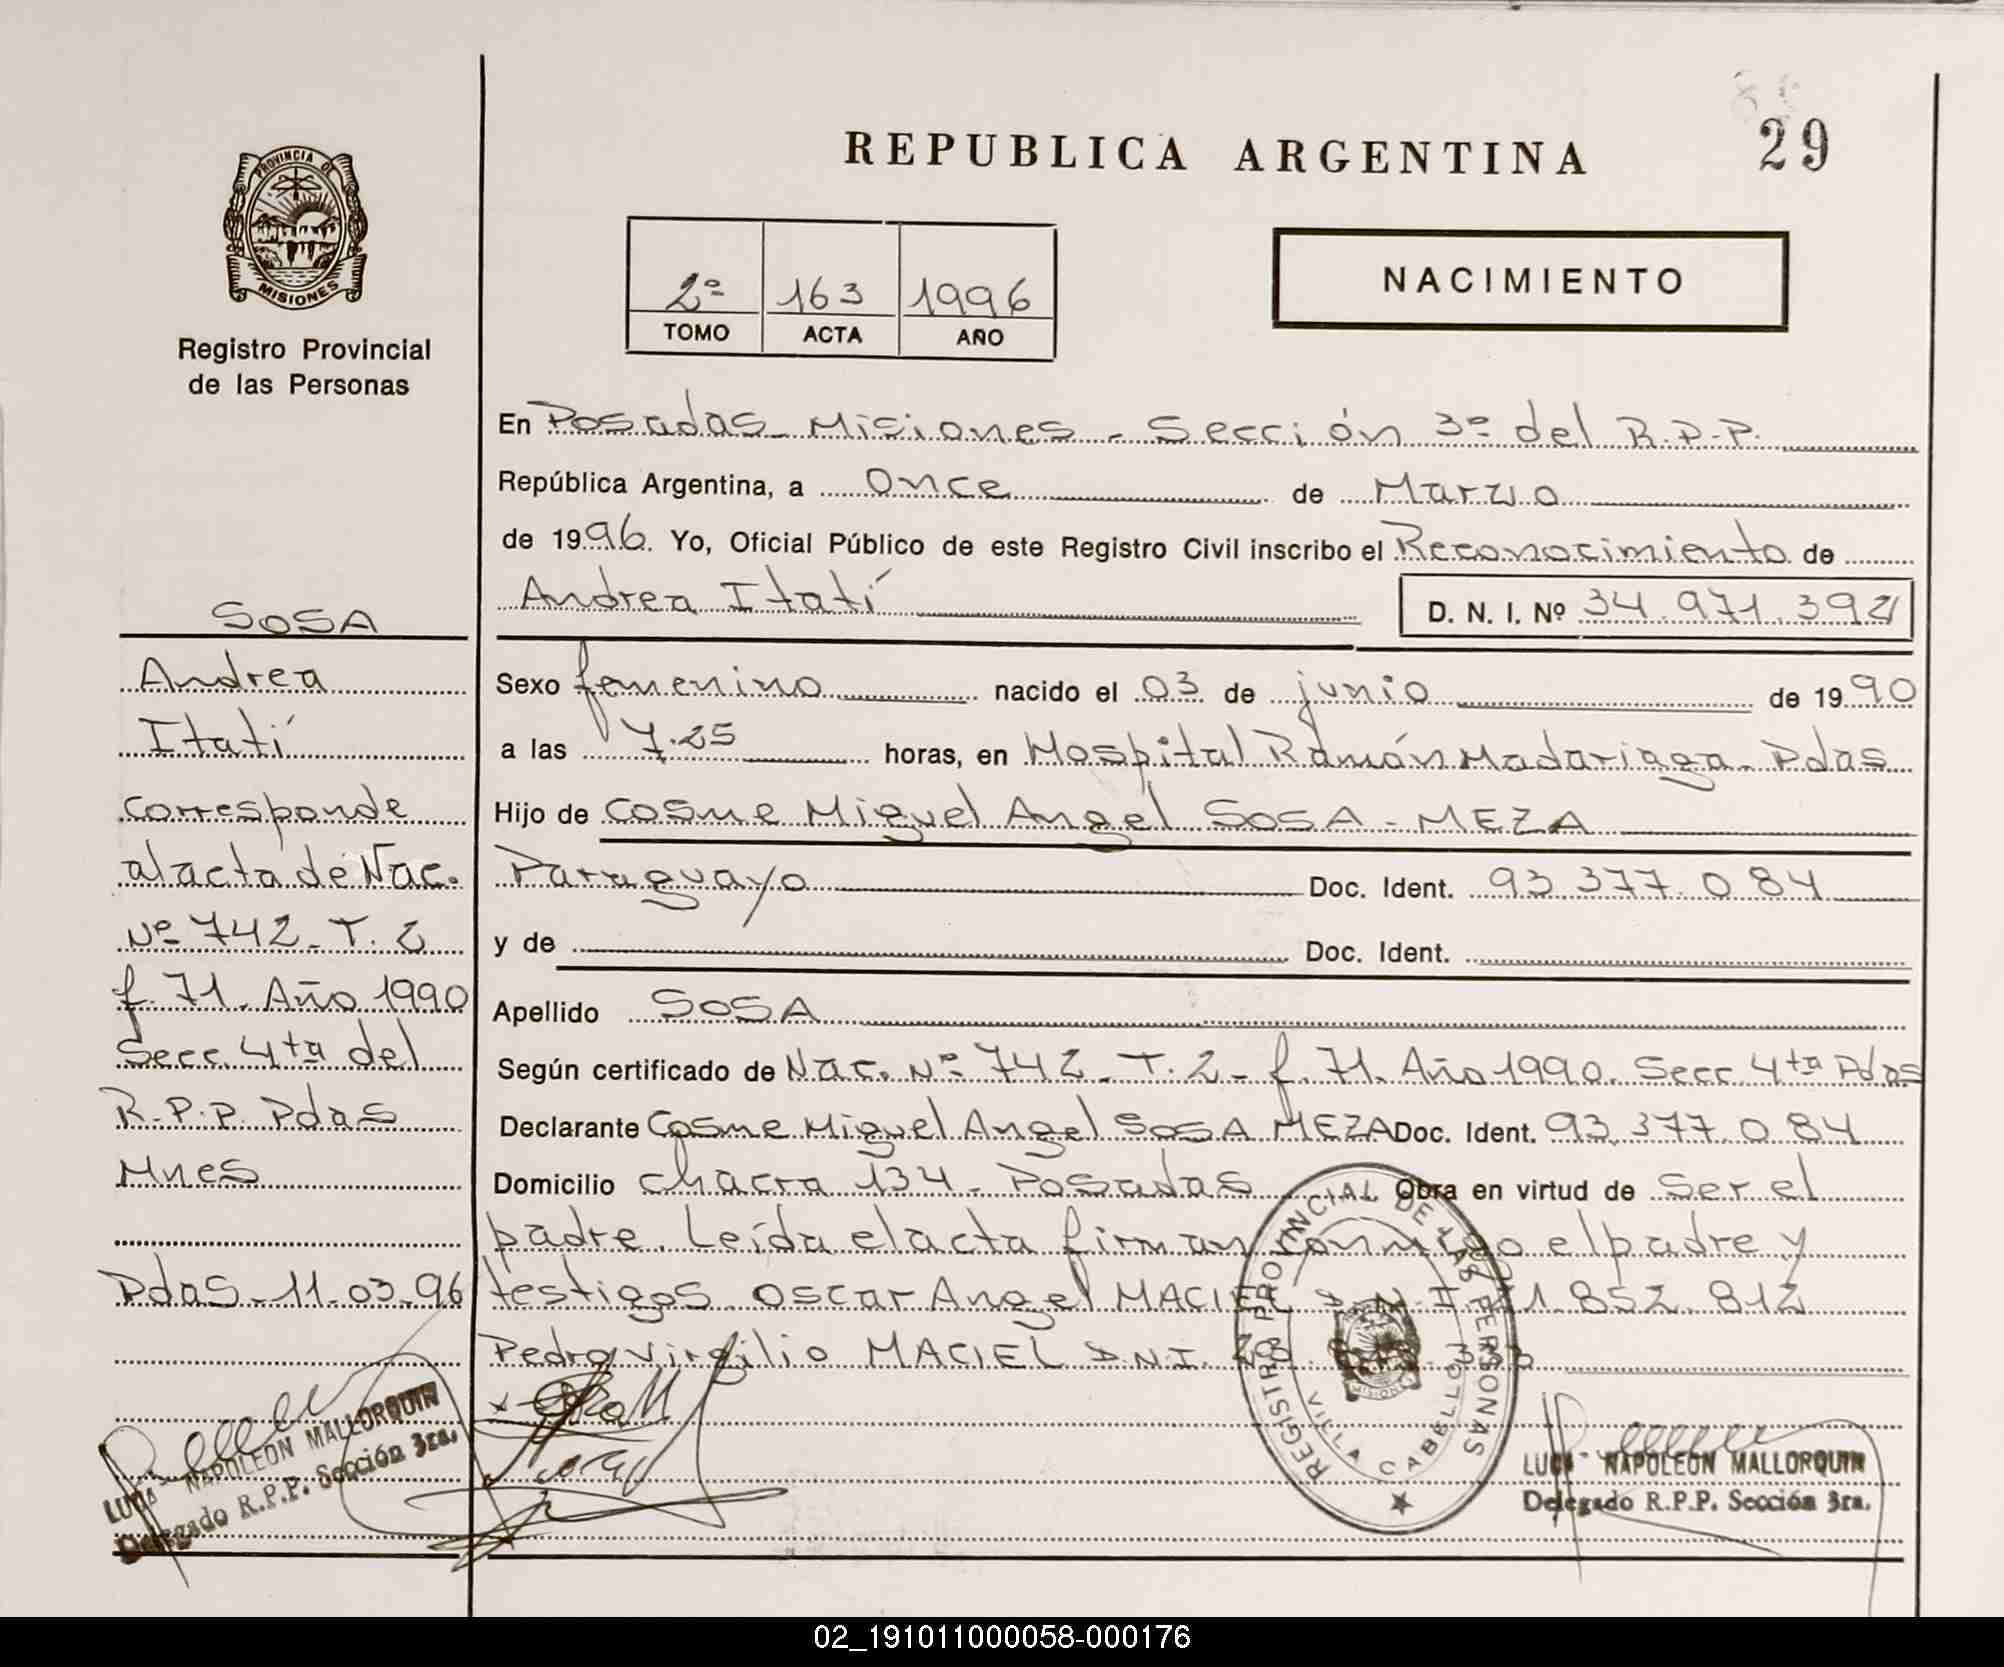 REPUBLICA ARGENTINA
29
PROVINCIA DE
MISIONES
Registro Provincial
de las Personas
2º 163 1996
TOMO ACTA AÑO
NACIMIENTO
En Posadas - Misiones - Sección 3º del R.P.P.
República Argentina, a Once de Marzo
de 1996. Yo, Oficial Público de este Registro Civil inscribo el Reconocimiento de
Andrea Itatí
D. N. I. Nº 34.971.392
Sexo femenino nacido el 03 de junio de 1990
a las 7.25 horas, en Hospital Ramón Madariaga - Pdas
Hijo de Cosme Miguel Angel SOSA - MEZA
Paraguayo Doc. Ident. 93.377.084
y de Doc. Ident.
Apellido SOSA
Según certificado de Nac. Nº 742 - T. 2 - f. 71. Año 1990. Secc. 4ta Pdas
Declarante Cosme Miguel Angel SOSA MEZA Doc. Ident. 93.377.084
Domicilio chacra 134 - Posadas Obra en virtud de ser el
padre. Leída el acta firman conmigo el padre y
testigos Oscar Angel MACIEL D.N.I. 852.812
Pedro Virgilio MACIEL D.N.I.
SOSA
Andrea
Itatí
corresponde
al acta de Nac.
Nº 742 - T. 2
f. 71. Año 1990
Secc. 4ta del
R.P.P. Pdas
Mnes
Pdas - 11-03-96
NAPOLEON MALLORQUIN
Delegado R.P.P. Sección 3ra.
REGISTRO PROVINCIAL DE LAS PERSONAS
VILLA CABELLO
MISIONES
NAPOLEON MALLORQUIN
Delegado R.P.P. Sección 3ra.
02_191011000058-000176